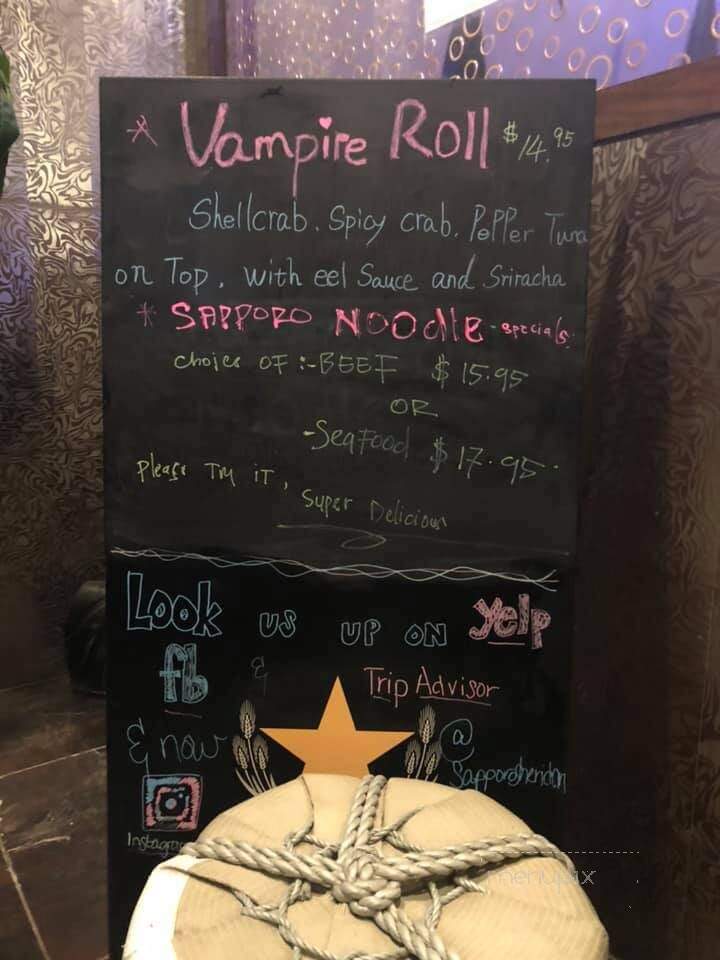 * Vampire Roll $14.95
Shellcrab. Spicy crab. Pepper Tuna
on Top, with eel Sauce and Sriracha
* SAPPORO NOOdLE - specials:
choice OF :- BEEF $15.95
OR
- SeaFood $17.95.
Please Try iT,
Super Delicious
Look us up on yelp
fb & Trip Advisor
& now @
Sapporosheridan
Instagram
menupix